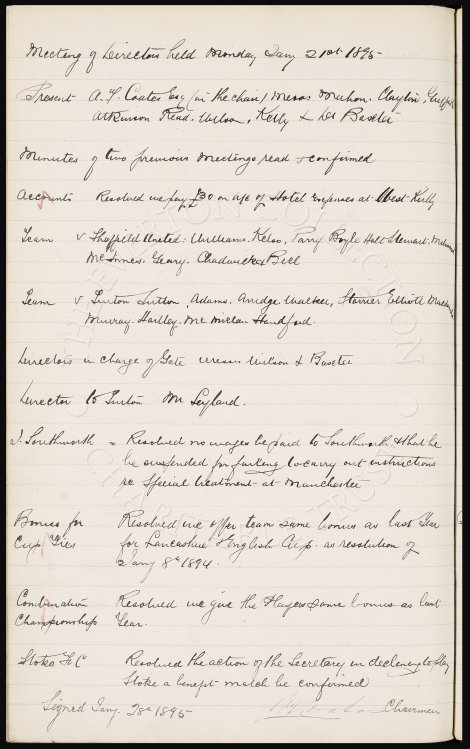 Meeting of Directors held Monday Jany 21st 1895
Present A. T. Coates Esq (in the chair) Messrs Mahon. Clayton, Griffiths
Atkinson Read. Wilson, Kelly & Dr Baxter
Minutes of two previous meetings read & confirmed
Accounts Resolved we pay £30 on a/c of Hotel Expenses at West Kirby
Team v Sheffield United: Williams. Kelso, Parry. Boyle Holt Stewart.
McInnes. Geary. Chadwick & Bell
Team v Luton Sutton, Adams. Arridge. Walker, Storrier Elliott
Murray. Hartley. McMillan Handford.
Directors in charge of Gate Messrs Wilson & Baxter
Director to Luton Mr Leyland.
J. Southworth = Resolved no wages be paid to Southworth & that he
be suspended for failing to carry out instructions
re Special treatment at Manchester
Bonus for Resolved we offer team same bonus as last Year
Cup Ties for Lancashire & English Cup. as resolution of
Jany 8th 1894.
Combination Resolved we give the Players same bonus as last
Championship Year.
Stoke F.C Resolved the action of the Secretary in declining to play
Stoke a benefit match be confirmed
Signed Jany. 28th 1895 Chairman